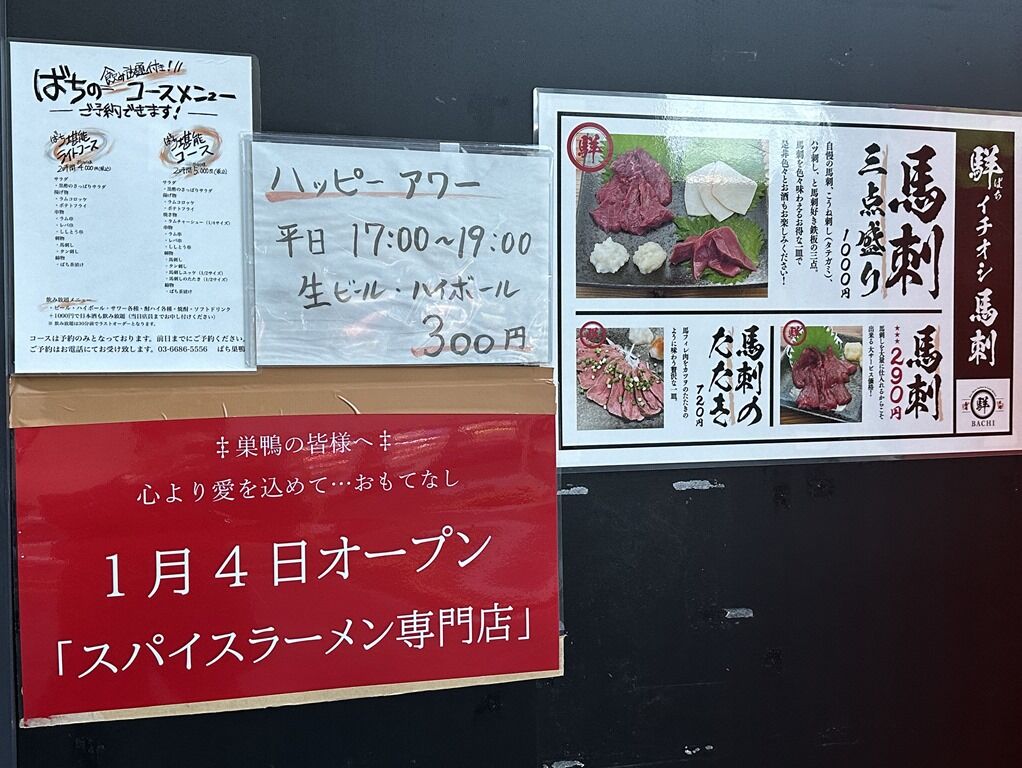 飲み放題付き!!
ばちの コースメニュー
ご予約できます!
ばち堪能
ライトコース
2時間 4,000円(税込)
サラダ
・黒酢のさっぱりサラダ
揚げ物
・ラムコロッケ
・ポテトフライ
串物
・ラム串
・レバ串
・ししとう串
刺物
・馬刺し
・タン刺し
締物
・ばち茶漬け
ばち堪能
コース
2時間 5,000円(税込)
サラダ
・黒酢のさっぱりサラダ
揚げ物
・ラムコロッケ
・ポテトフライ
焼き物
・ラムチャーシュー(1/4サイズ)
串物
・ラム串
・レバ串
・ししとう串
刺物
・馬刺し
・タン刺し
・馬刺しユッケ(1/2サイズ)
・馬刺しのたたき(1/2サイズ)
締物
・ばち茶漬け
飲み放題メニュー
・ビール・ハイボール・サワー各種・酎ハイ各種・焼酎・ソフトドリンク
・+1000円で日本酒も飲み放題(当日店員までお申し付けください)
※飲み放題は30分前でラストオーダーとなります。
コースは予約のみとなっております。前日までにご予約ください。
ご予約はお電話にてお受け致します。03-6686-5556 ばち巣鴨
ハッピーアワー
平日 17:00~19:00
生ビール・ハイボール
300円
‡巣鴨の皆様へ‡
心より愛を込めて…おもてなし
1月4日オープン
「スパイスラーメン専門店」
鮮 ばち イチオシ馬刺
鮮
BACHI
馬刺
三点盛り
1000円
自慢の馬刺、こうね刺し(タテガミ)、
ハツ刺し、と馬刺好き鉄板の三点。
馬刺を色々味わえるお得な一皿で
是非色々とお酒もお楽しみください!
鮮
馬刺
★★290円
馬刺しを大量に仕入れるからこそ
出来る大サービス価格!
鮮
馬刺の
たたき
720円
馬フィレ肉をカツヲのたたきの
ように味わう贅沢な一皿。
鮮